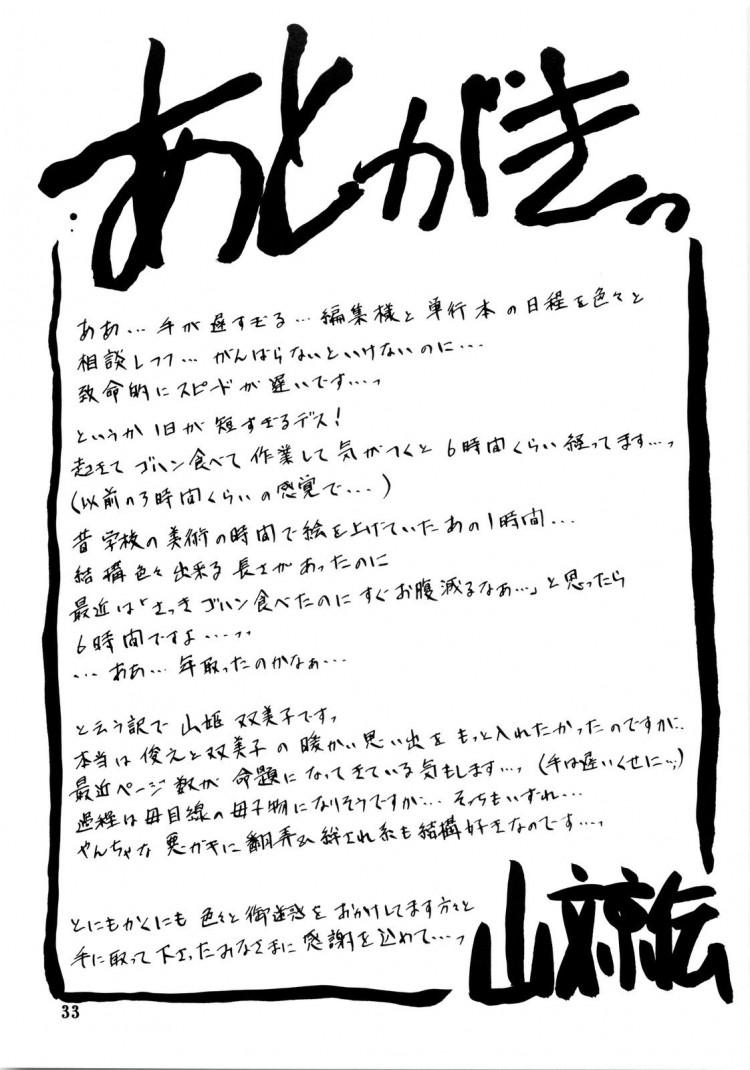 あとがきっ
ああ…手が遅すぎる…編集様と単行本の日程を色々と
相談しつつ…がんばらないといけないのに…
致命的にスピードが遅いです…っ
というか1日が短すぎるデス!
起きてゴハン食べて作業して気がつくと6時間くらい経ってます…っ
(以前の3時間くらいの感覚で…)
昔学校の美術の時間で絵を上げていたあの1時間…
結構色々出来る長さがあったのに
最近は「さっきゴハン食べたのにすぐお腹減るなぁ…」と思ったら
6時間ですよ…っっ
…ああ…年取ったのかなぁ…
と云う訳で山姫双美子ですっ
本当は俊之と双美子の暖かい思い出をもっと入れたかったのですが…
最近ページ数が命題になってきている気もします…っ(手は遅いくせに…)
過程は母目線の母子物になりそうですが…そっちもいずれ…
やんちゃな悪ガキに翻弄&絆され系も結構好きなのです…っ
とにもかくにも色々と御迷惑をおかけしてます方々と
手に取って下さったみなさまに感謝を込めて…っ
山文京伝
33